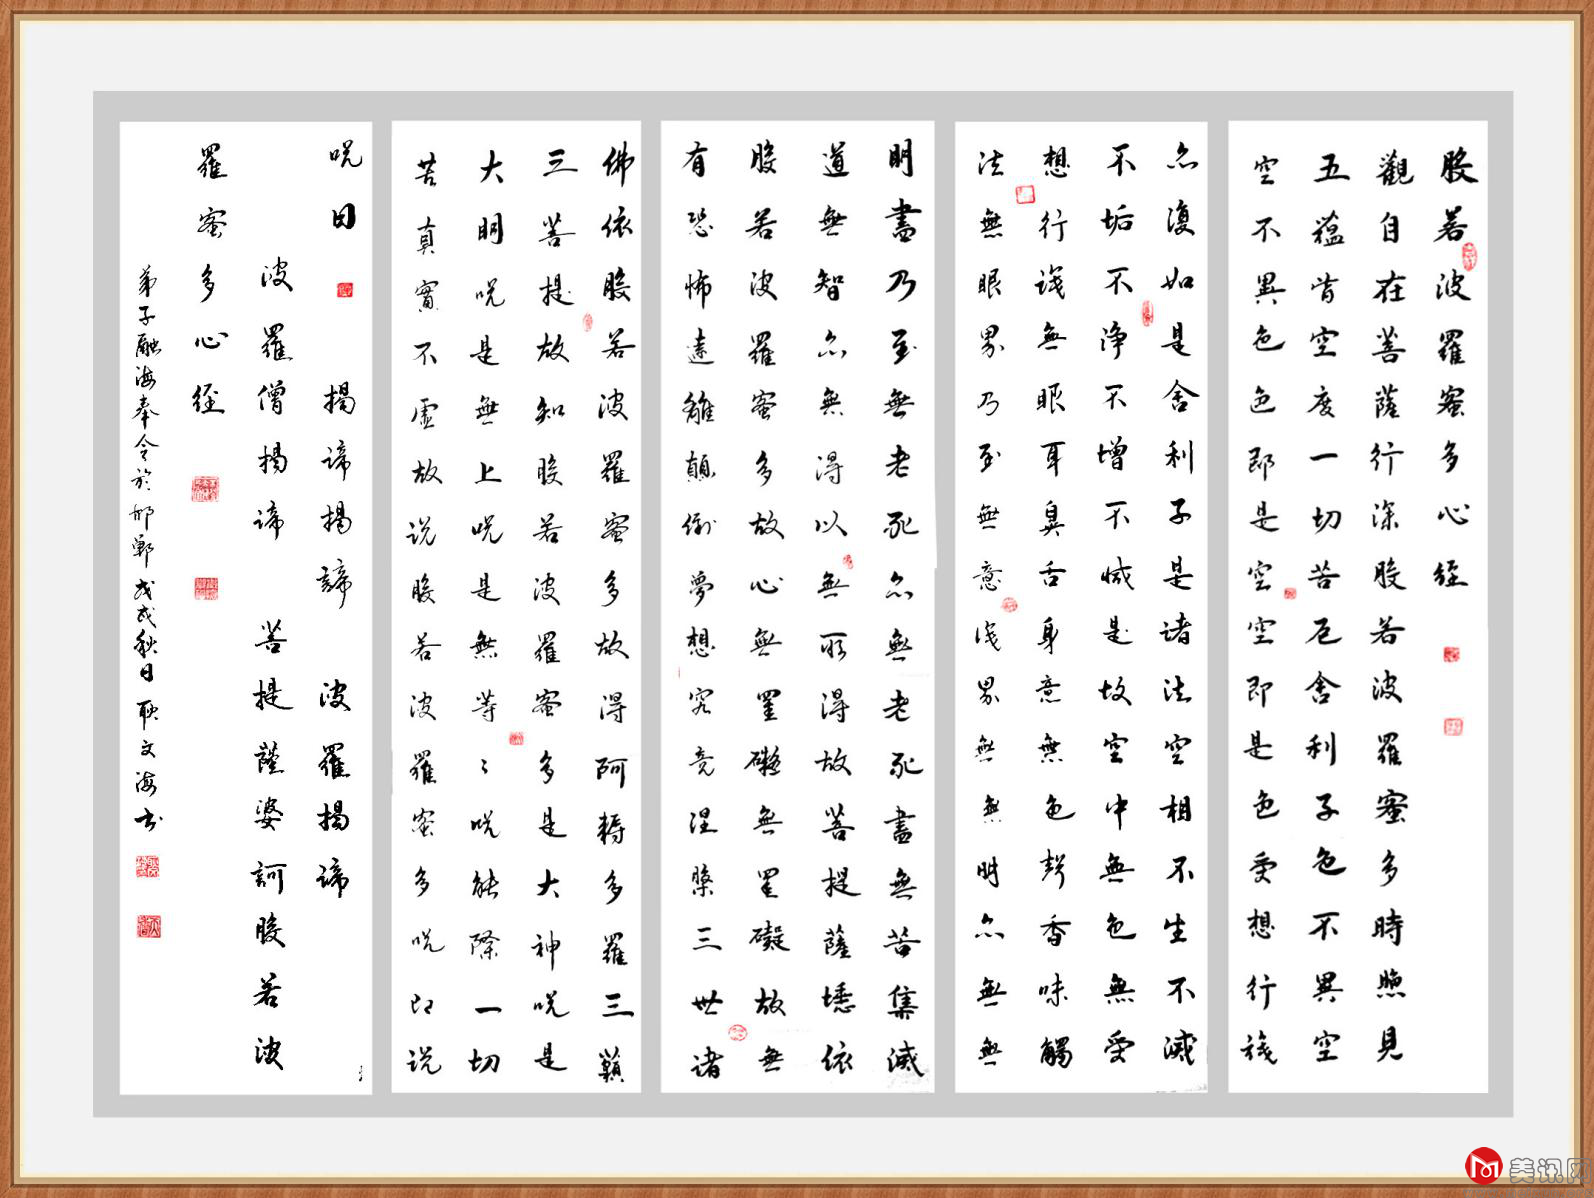 般若波羅蜜多心經
觀自在菩薩行深般若波羅蜜多時照見
五蘊皆空度一切苦厄舍利子色不異空
空不異色色即是空空即是色受想行識
亦復如是舍利子是諸法空相不生不滅
不垢不淨不增不減是故空中無色無受
想行識無眼耳鼻舌身意無色聲香味觸
法無眼界乃至無意識界無無明亦無無
明盡乃至無老死亦無老死盡無苦集滅
道無智亦無得以無所得故菩提薩埵依
般若波羅蜜多故心無罣礙無罣礙故無
有恐怖遠離顛倒夢想究竟涅槃三世諸
佛依般若波羅蜜多故得阿耨多羅三藐
三菩提故知般若波羅蜜多是大神咒是
大明咒是無上咒是無等々咒能除一切
苦真實不虛故說般若波羅蜜多咒即說
咒曰 揭諦揭諦 波羅揭諦
波羅僧揭諦 菩提薩婆訶般若波
羅蜜多心經
弟子融海奉令於邯鄲戊戌秋日耿文海书
美讯网